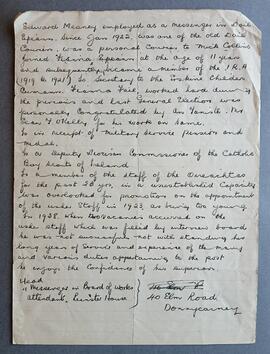 Edward Meaney employed as a messenger in Dail
Eireann. Since Jan 1922, was one of the old Dail
Couriers, was a personal Courier to Mick Collins
Joined Fianna Eireann at the age of 11 years
and subsequently became a member of the I.R.A
1919 to 1921. Secretary to the Erskine Childers
Cumann, Fianna Fail, worked hard during
the previous and last General Election was
personally Congratulated by An Tanaiste Mr.
Sean T O'Kelly on his work on same.
In receipt of Military Service Pension and
Medal.
Is a Deputy Division Commissioner of the Catholic
Boy Scouts of Ireland.
Is a member of the staff of the Oireachtas
for the past 20 yrs, in a unestablished Capacity
was overlooked for promotion on the appointment
of the usher Staff in 1923 as being too young.
In 1938 when two vacancies occurred on the
usher staff which was filled by interview board
he was not successful not with standing his
long years of service and experience of the many
and various duties appertaining to the post
he enjoys the Confidence of his superior.
Head
"Messenger in Board of Works
attendant, Leinster House
40 Elm Road
Donnycarney